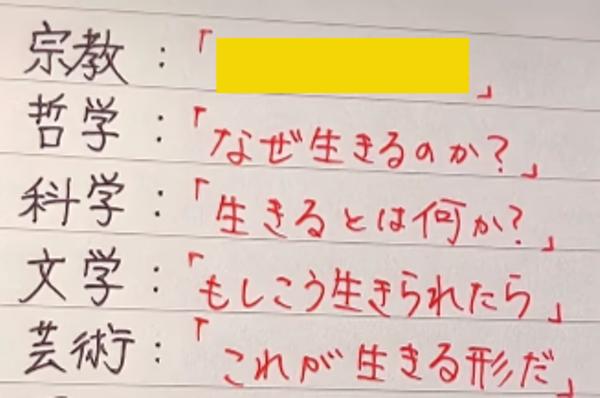 宗教：「 」
哲学：「なぜ生きるのか？」
科学：「生きるとは何か？」
文学：「もしこう生きられたら」
芸術：「これが生きる形だ」